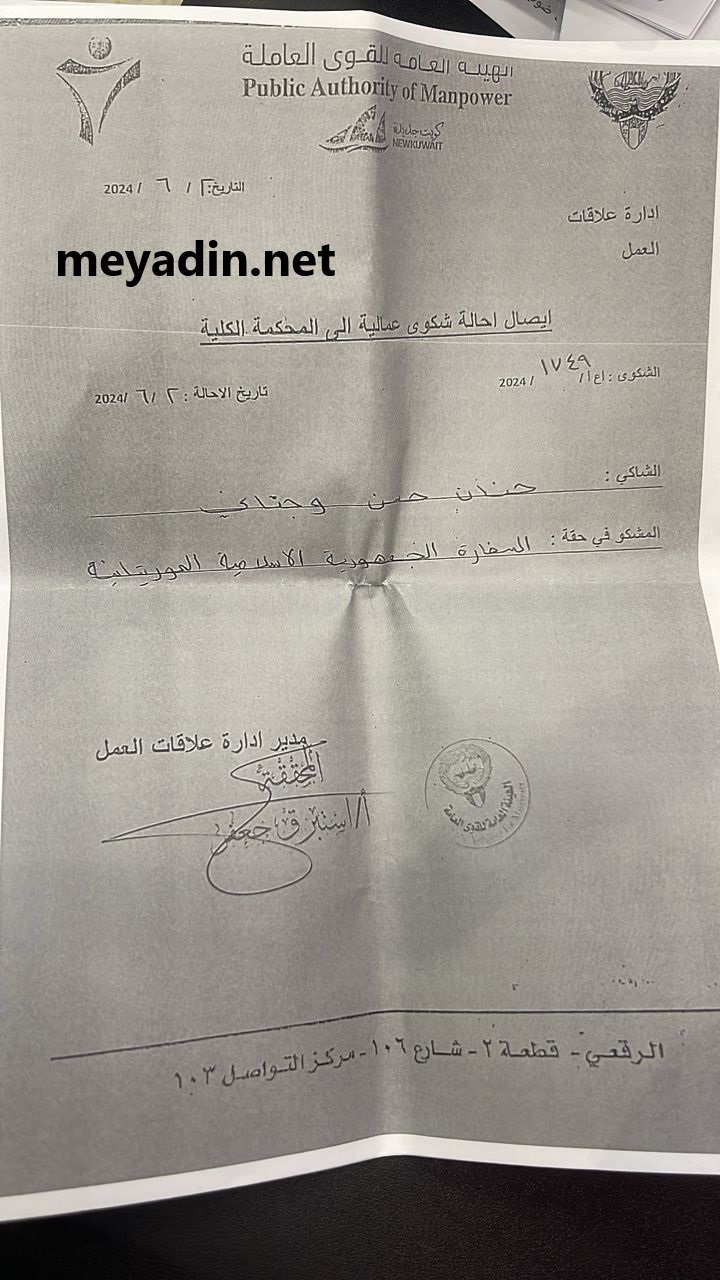 الهيئة العامة للقوى العاملة
Public Authority of Manpower
كويت جديدة
NEWKUWAIT
التاريخ: ٢ / ٦ / 2024
ادارة علاقات
العمل
meyadin.net
ايصال احالة شكوى عمالية الى المحكمة الكلية
الشكوى : اع أ/ ١٧٤٩ / 2024
تاريخ الاحالة : ٢ / ٦ / 2024
الشاكي : حنان حسن
المشكو في حقة : السفارة الجمهورية الاسلامية الموريتانية
مدير ادارة علاقات العمل
المحققة
أ/استبرق جعفر
الهيئة العامة للقوى العاملة
الرقعي - قطعة ٢ - شارع ١٠٦ - مركز التواصل ١٠٣